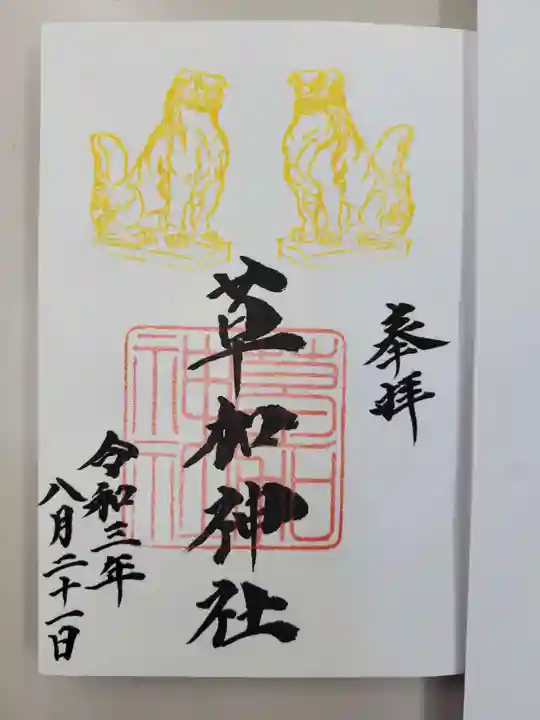 奉拝
草加神社
草加神社
令和三年
八月二十一日